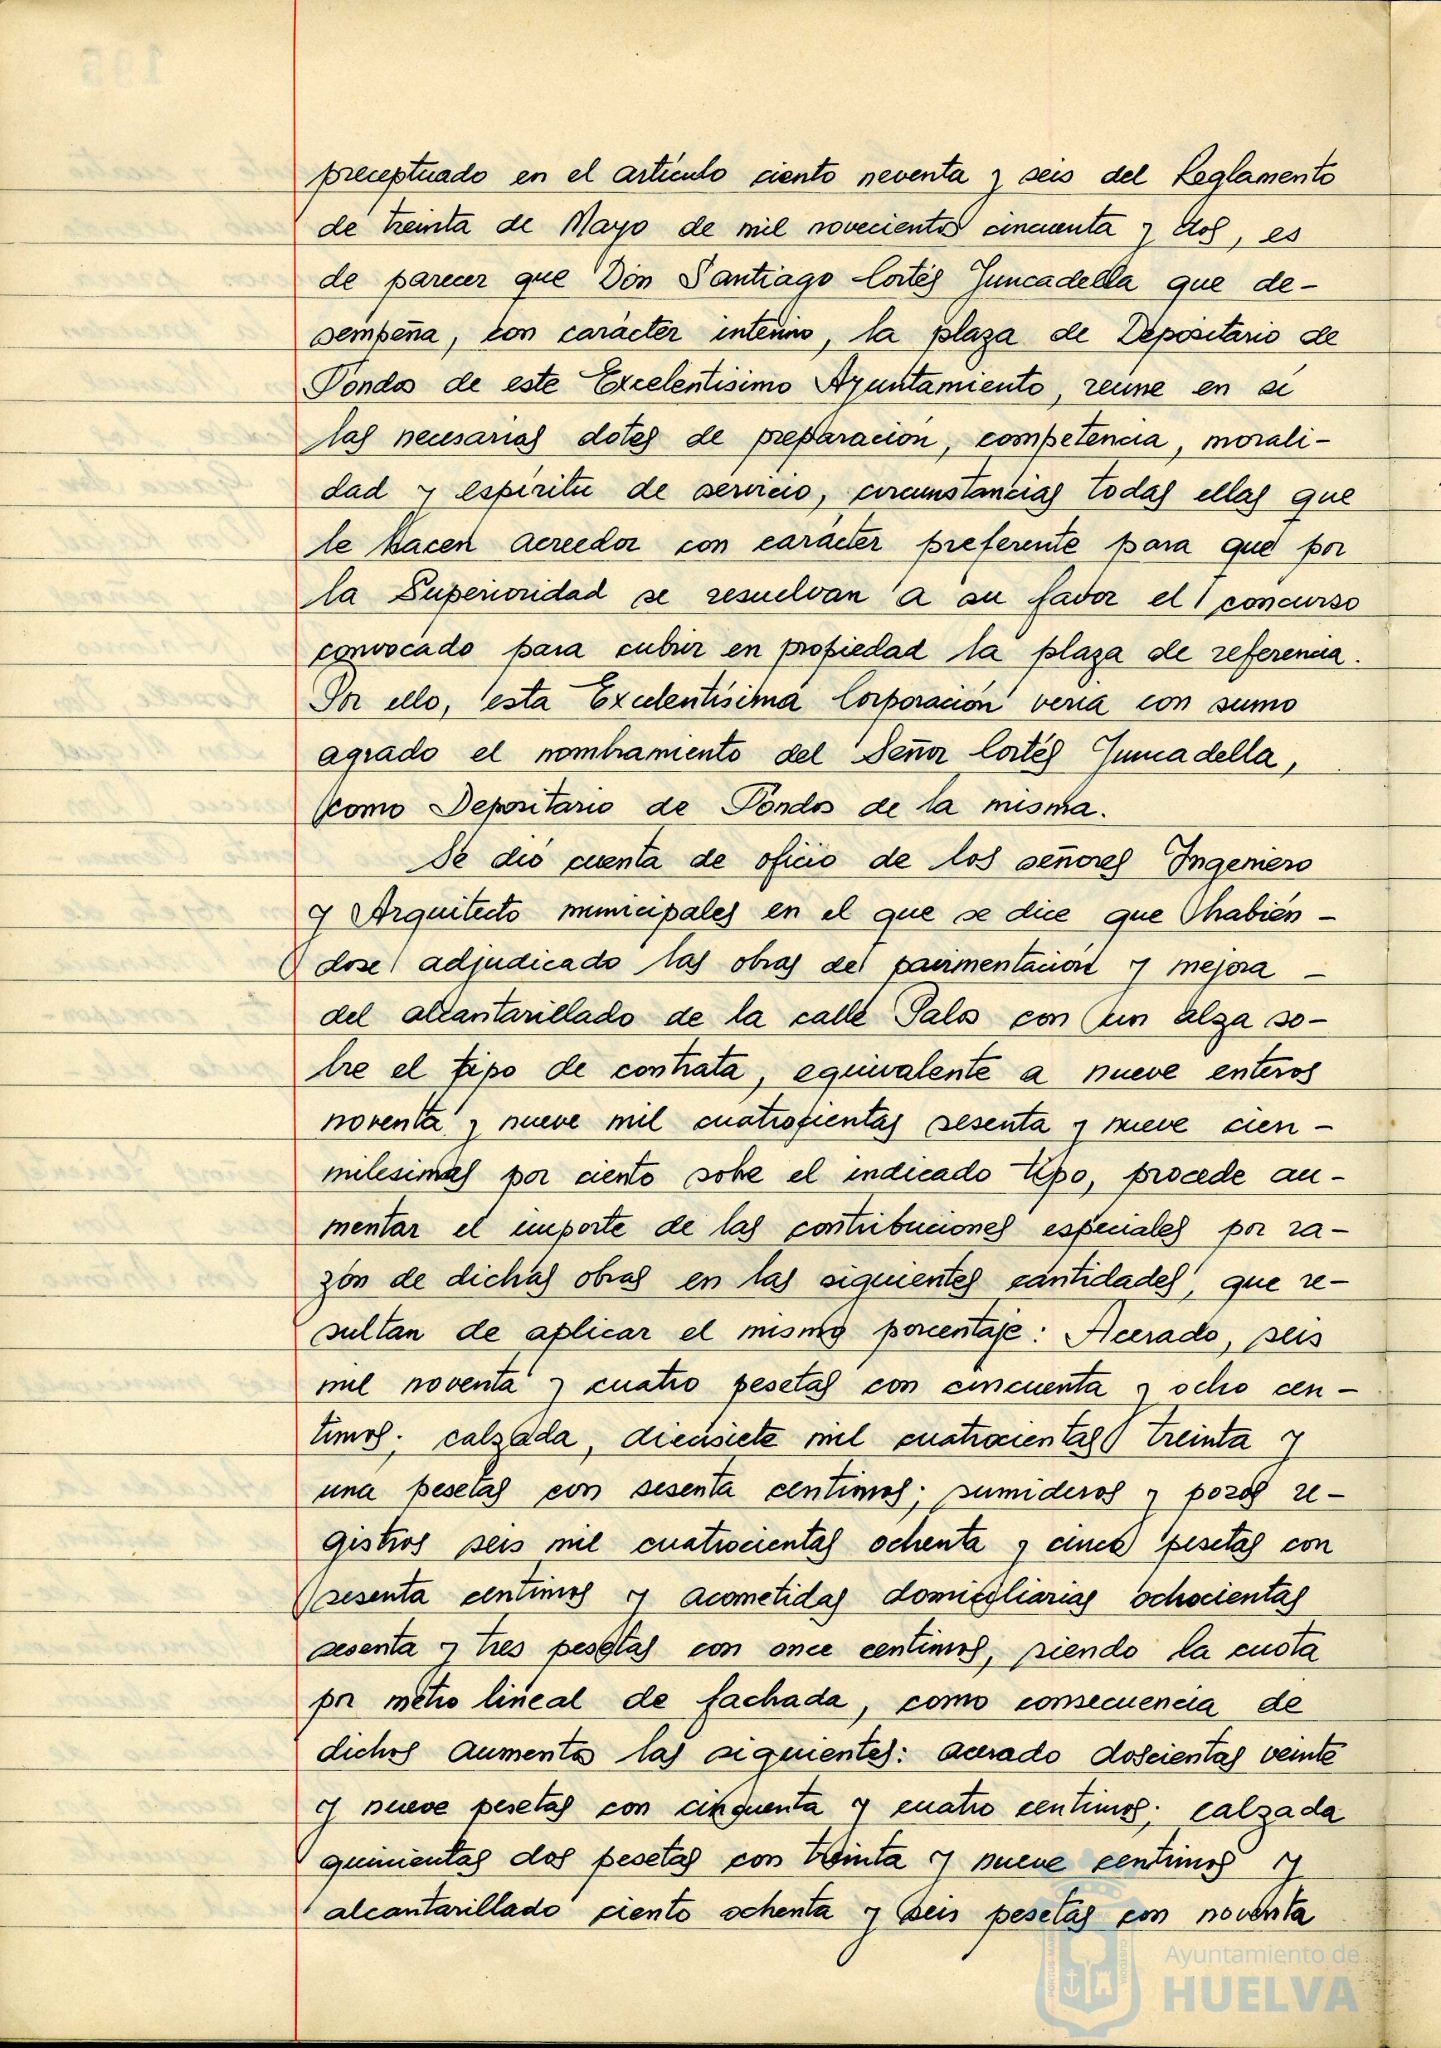 preceptuado en el artículo ciento noventa y seis del Reglamento
de treinta de Mayo de mil novecientos cincuenta y dos, es
de parecer que Don Santiago Cortés Juncadella que de-
sempeña, con carácter interino, la plaza de Depositario de
Fondos de este Excelentísimo Ayuntamiento, reune en si
las necesarias dotes de preparación, competencia, morali-
dad y espíritu de servicio, circunstancias todas ellas que
le hacen acreedor con carácter preferente para que por
la Superioridad se resuelvan a su favor el concurso
convocado para cubrir en propiedad la plaza de referencia.
Por ello, esta Excelentísima Corporación vería con sumo
agrado el nombramiento del Señor Cortés Juncadella,
como Depositario de Fondos de la misma.
Se dió cuenta de oficio de los señores Ingeniero
y Arquitecto municipales en el que se dice que habién-
dose adjudicado las obras de pavimentación y mejora -
del alcantarillado de la calle Palos con un alza so-
bre el tipo de contrata, equivalente a nueve enteros
noventa y nueve mil cuatrocientas sesenta y nueve cien-
milesimas por ciento sobre el indicado tipo, procede au-
mentar el importe de las contribuciones especiales por ra-
zón de dichas obras en las siguientes cantidades, que re-
sultan de aplicar el mismo porcentaje: Acerado, seis
mil noventa y cuatro pesetas con cincuenta y ocho cen-
timos; calzada, diecisiete mil cuatrocientas treinta y
una pesetas con sesenta centimos; sumideros y pozos re-
gistros seis mil cuatrocientas ochenta y cinco pesetas con
sesenta centimos y acometidas domiciliarias ochocientas
sesenta y tres pesetas con once centimos, siendo la cuota
por metro lineal de fachada, como consecuencia de
dichos aumentos las siguientes: acerado doscientas veinte
y nueve pesetas con cincuenta y cuatro centimos; calzada
quinientas dos pesetas con treinta y nueve centimos y
alcantarillado ciento ochenta y seis pesetas con noventa
Ayuntamiento de
HUELVA